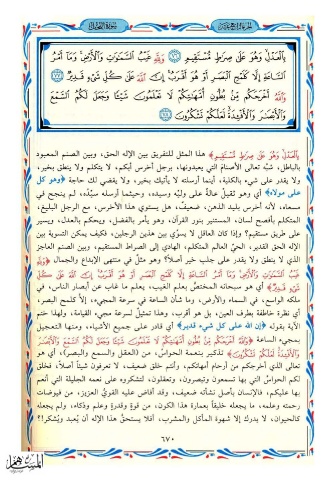 الجزء الرابع عشر
سورة النحل
بِٱلْعَدْلِ وَهُوَ عَلَىٰ صِرَٰطٍ مُّسْتَقِيمٍ ۝ وَلِلَّهِ غَيْبُ ٱلسَّمَٰوَٰتِ وَٱلْأَرْضِ وَمَآ أَمْرُ
ٱلسَّاعَةِ إِلَّا كَلَمْحِ ٱلْبَصَرِ أَوْ هُوَ أَقْرَبُ إِنَّ ٱللَّهَ عَلَىٰ كُلِّ شَىْءٍ قَدِيرٌ ۝
وَٱللَّهُ أَخْرَجَكُم مِّنۢ بُطُونِ أُمَّهَٰتِكُمْ لَا تَعْلَمُونَ شَيْـًٔا وَجَعَلَ لَكُمُ ٱلسَّمْعَ
وَٱلْأَبْصَٰرَ وَٱلْأَفْـِٔدَةَ لَعَلَّكُمْ تَشْكُرُونَ ۝
بِٱلْعَدْلِ وَهُوَ عَلَىٰ صِرَٰطٍ مُّسْتَقِيمٍ﴾ هذا المثل للتفريق بين الإله الحق، وبين الصنم المعبود
بالباطل، شبَّه تعالى الأصنامَ التي يعبدونها، برجل أخرس أبكم، لا يتكلم ولا ينطق بخير،
ولا يقدر على شيء بالكلية، أينما أرسلته لا يأتيك بخير، ولا يقضي لك حاجة ﴿وهو كل
على مولاه﴾ أي وهو ثقيل عالة على وليّه وسيده، وحيثما أرسله سيّدُه، لم ينجح في
مسعاه، لأنه أخرس بليد الذهن، ضعيف، هل يستوي هذا الأخرس، مع الرجل البليغ،
المتكلم بأفصح لسان، المستنير بنور القرآن، وهو يأمر بالفضل، ويحكم بالعدل، ويسير
على طريق مستقيم؟ وإذا كان العاقل لا يسوّي بين هذين الرجلين، فكيف يمكن التسوية بين
الإله الحق القدير، الحيّ العالم المتكلم، الهادي إلى الصراط المستقيم، وبين الصنم العاجز
الذي لا ينطق ولا يقدر على جلب خير أصلاً؟ وهو مثلٌ في منتهى الإبداع والجمال ﴿وَلِلَّهِ
غَيْبُ ٱلسَّمَٰوَٰتِ وَٱلْأَرْضِ وَمَآ أَمْرُ ٱلسَّاعَةِ إِلَّا كَلَمْحِ ٱلْبَصَرِ أَوْ هُوَ أَقْرَبُ إِنَّ ٱللَّهَ عَلَىٰ كُلِّ
شَىْءٍ قَدِيرٌ﴾ أي هو سبحانه المختصُّ بعلم الغيب، يعلم ما غاب عن أبصار الناس، في
ملكه الواسع، في السماء والأرض، وما شأن الساعة في سرعة المجيء، إلاَّ كلمح البصر،
أي نظرة خاطفة بطرف العين، بل هو أقرب، وهذا تمثيلٌ لسرعة مجيء القيامة، ولهذا ختم
الآية بقوله ﴿إن الله على كل شيء قدير﴾ أي قادر على جميع الأشياء، ومنها التعجيل
بمجيء الساعة ﴿وَٱللَّهُ أَخْرَجَكُم مِّنۢ بُطُونِ أُمَّهَٰتِكُمْ لَا تَعْلَمُونَ شَيْـًٔا وَجَعَلَ لَكُمُ ٱلسَّمْعَ وَٱلْأَبْصَٰرَ
وَٱلْأَفْـِٔدَةَ لَعَلَّكُمْ تَشْكُرُونَ﴾ تذكير بنعمة الحواسِّ، من (العقل والسمع والبصر)، أي هو
تعالى الذي أخرجكم من أرحام أمهاتكم، وأنتم خلق ضعيف، لا تعرفون شيئاً أصلاً، فخلق
لكم الحواسَّ التي بها تسمعون وتبصرون، وتعقلون، لتشكروه على نعمه الجليلة التي أنعم
بها عليكم، فالإنسان بأصل نشأته ضعيف، وقد أفاض عليه القويُّ العزيز، من فيوضات
رحمته وعلمه، ما يجعله خليقاً بعمارة هذا الكون، من قوةٍ وقدرةٍ وعلم وذكاء، ولم يجعله
كالحيوان، لا يدرك إلا شهوة المأكل والمشرب، أفلا يستحقُّ هذا الإله أن يُعبد ويُشكر!؟
٦٧٠